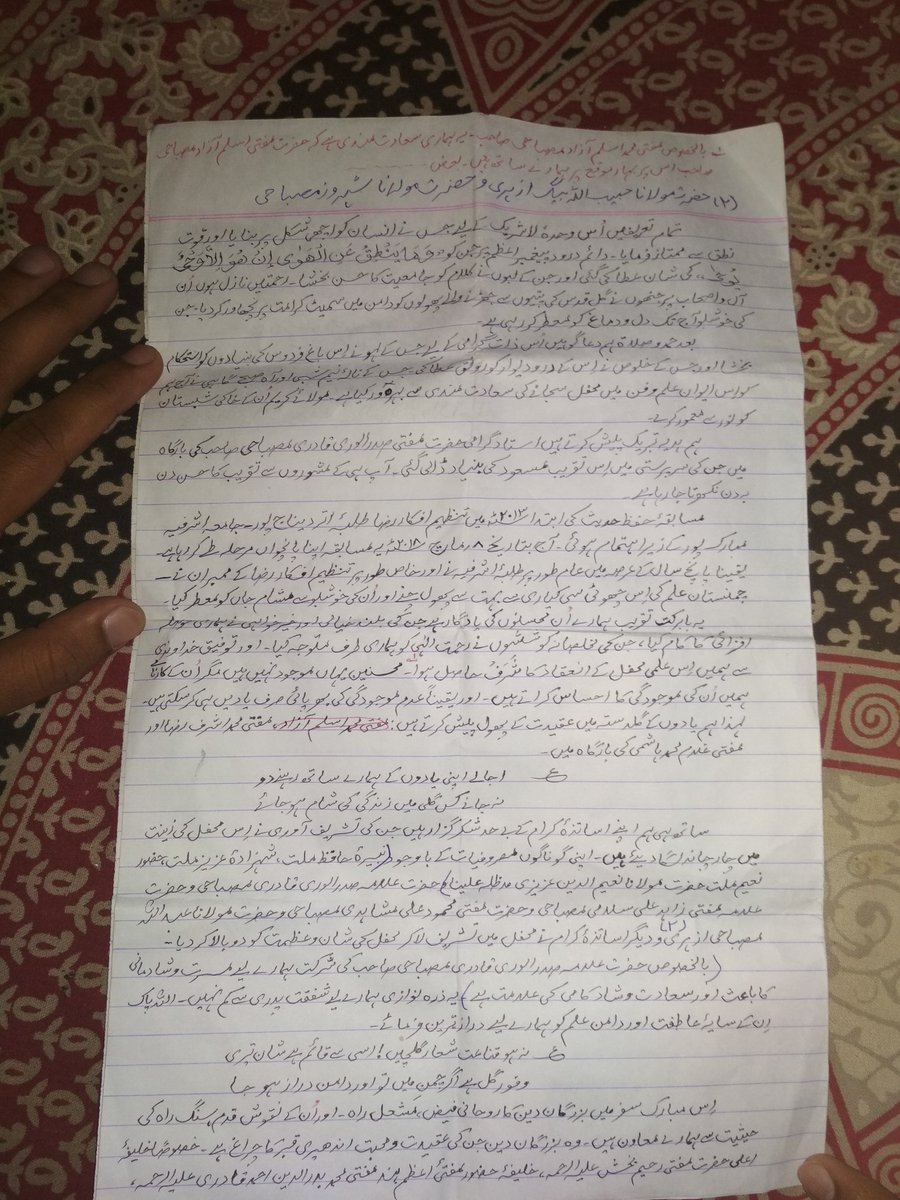 بالخصوص مفتی محمد اسلم آزاد مصباحی صاحب۔ یہ ہماری سعادت مندی ہے کہ حضرت مفتی اسلم آزاد مصباحی
صاحب اس پر بہار موقع پر ہمارے ساتھ ہیں۔ بعوض
(۲) حضرت مولانا حبیب اللہ بیگ ازہری و حضرت مولانا شہروز مصباحی
تمام تعریفیں اُس وحدہٗ لاشریک کے لیے جس نے انسان کو اچھی شکل پر بنایا اور قوت
نطق سے ممتاز فرمایا۔ دائم درود پیغمبر اعظم پر جن کو «وَمَا يَنْطِقُ عَنِ الْهَوٰى إِنْ هُوَ إِلَّا وَحْيٌ
يُّوحٰى» کی شان عطا کی گئی اور جن کے لبوں نے کلام کو جامعیت کا حسن بخشا۔ رحمتیں نازل ہوں اُن
آل و اصحاب پر جنھوں نے گل قدس کی پتیوں سے جھڑنے والے پھولوں کو دامن میں سمیٹ کر امت پر نچھاور کر دیا۔ جن
کی خوشبو آج تک دل و دماغ کو معطر کر رہی ہے۔
بعد حمد و صلاۃ ہم دعا گو ہیں اُس ذات گرامی کے لیے جس کے لہو نے اس باغ فردوس کی بنیادوں کو استحکام
بخشا اور جس کے خلوص نے اس کے در و دیوار کو رونق عطا کی جس کے نالۂ نیم شبی اور آہ صبح گاہی نے آج ہم
کو اس ایوان علم و فن میں محفل سجانے کی سعادت مندی سے بہرہ ور کیا ہے۔ مولائے کریم ان کے خاکی شبستان
کو نور سے معمور کرے۔
ہم ہدیۂ تبریک پیش کرتے ہیں استاد گرامی حضرت مفتی صدر الوری قادری مصباحی صاحب کی بارگاہ
میں جن کی سرپرستی میں اس تقریب مسعود کی بنیاد ڈالی گئی۔ آپ ہی کے مشوروں سے تقریب کا حسن دن
بہ دن نکھرتا جا رہا ہے۔
مسابقۂ حفظ حدیث کی ابتدا ۲۰۱۳ء میں تنظیم افکار رضا طلبۂ اتر دیناج پور۔ جامعہ اشرفیہ
مبارک پور کے زیر اہتمام ہوئی۔ آج بتاریخ ۸ مارچ ۲۰۱۸ء یہ مسابقہ اپنا پانچواں مرحلہ طے کر رہا ہے۔
یقینا پانچ سال کے عرصہ میں عام طور پر طلبۂ اشرفیہ نے اور خاص طور پر تنظیم افکار رضا کے ممبران نے
چمنستان علم کی اس چھوٹی سی کیاری سے بہت سے پھول چنے اور ان کی خوشبو سے مشام جاں کو معطر کیا۔
یہ بابرکت تقریب ہمارے اُن محسنوں کی یادگار ہے جن کی بلند خیالی اور خیر خواہی نے ہماری حوصلہ
افزائی کا کام کیا، جن کی مخلصانہ کوششوں نے رحمت الٰہی کو ہماری طرف متوجہ کیا۔ اور توفیق خداوندی
سے ہمیں اس علمی محفل کے انعقاد کا شرف حاصل ہوا۔ محسنین یہاں موجود نہیں ہیں مگر اُن کے کارنامے
ہمیں اُن کی موجودگی کا احساس کراتے ہیں۔ اور یقیناً عدم موجودگی کی بھرپائی صرف یادیں ہی کر سکتی ہیں۔
لہذا ہم یادوں کے گلدستے میں عقیدت کے پھول پیش کرتے ہیں: مفتی محمد اسلم آزاد، مفتی محمد اشرف رضا اور
مفتی غلام محمد ہاشمی کی بارگاہ میں۔
ع اجالے اپنی یادوں کے ہمارے ساتھ رہنے دو
نہ جانے کس گلی میں زندگی کی شام ہو جائے
ساتھ ہی ہم اپنے اساتذۂ کرام کے بے حد شکر گزار ہیں جن کی تشریف آوری نے اس محفل کی زینت
میں چار چاند لگا دیئے ہیں۔ اپنی گوناگوں مصروفیات کے باوجود (نبیرۂ حافظ ملت، شہزادۂ عزیز ملت، حضور
نعیم ملت حضرت مولانا نعیم الدین عزیزی مدظلہ علینا) حضرت علامہ صدر الوری قادری مصباحی و حضرت
علامہ مفتی زاہد علی سلامی مصباحی و حضرت مفتی محمود علی مشاہدی مصباحی و حضرت مولانا عبد اللہ
مصباحی ازہری (۲) و دیگر اساتذۂ کرام نے محفل میں تشریف لا کر محفل کی شان و عظمت کو دوبالا کر دیا۔
(بالخصوص حضرت علامہ صدر الوری قادری مصباحی صاحب کی شرکت ہمارے لیے مسرت و شادمانی
کا باعث اور سعادت و شاد کامی کی علامت ہے) یہ ذرہ نوازی ہمارے لیے شفقت پدری سے کم نہیں۔ اللہ پاک
ان کے سایۂ عاطفت اور دامن علم کو ہمارے لیے دراز ترین فرمائے۔
ع نہ ہو قناعت شعار گلچیں! اسی سے قائم ہے شان تیری
وفور گل ہے اگر چمن میں تو اور دامن دراز ہو جا
اس مبارک سفر میں بزرگان دین کا روحانی فیض، مشعل راہ۔ اور اُن کے نقوش قدم سنگ راہ کی
حیثیت سے ہمارے معاون ہیں۔ وہ بزرگان دین جن کی عقیدت و محبت اندھیری قبر کا چراغ ہے۔ خصوصاً خلیفۂ
اعلی حضرت مفتی رحیم بخش علیہ الرحمہ، خلیفۂ حضور مفتیٔ اعظم ہند مفتی محمد بدر الدین احمد قادری علیہ الرحمہ،